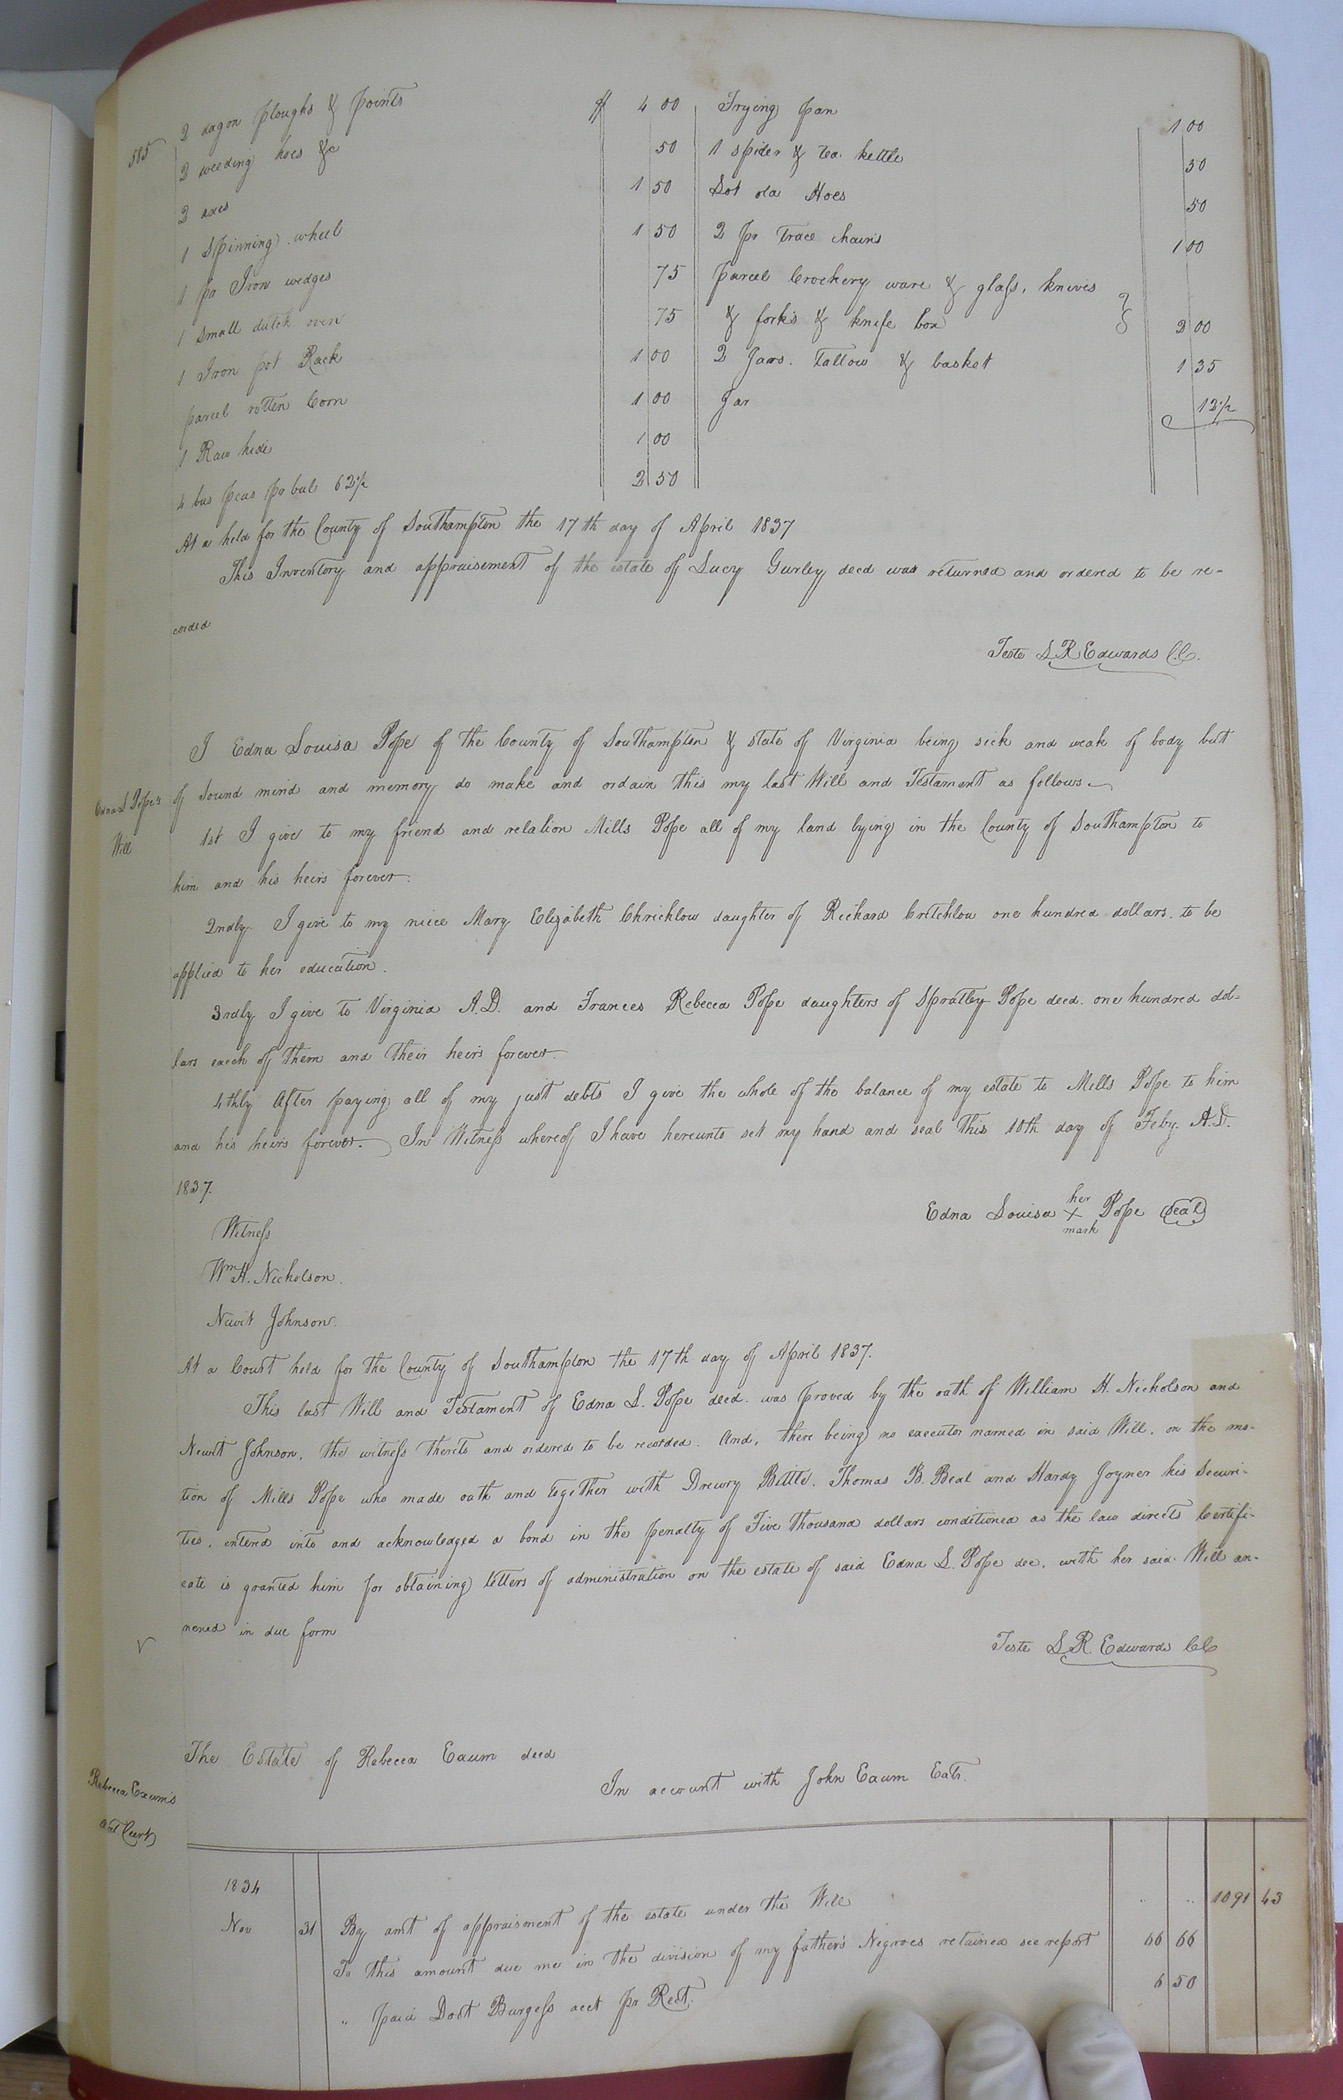 585
2 dagon ploughs & points $ 4 00
2 weeding hoes &c 50
2 axes 1 50
1 Spinning wheel 1 50
1 pr Iron wedges 75
1 small dutch oven 75
1 Iron pot Rack 1 00
parcel rotten Corn 1 00
1 Raw hide 1 00
4 bus peas pr bul 62½ 2 50
Frying pan 1 00
1 spider & tea kettle 50
Lot old Hoes 50
2 pr Trace chains 1 00
parcel Crockery ware & glass, knives
& forks & knife box 2 00
2 Jars. Tallow & basket 1 35
Jar 12½
At a held for the County of Southampton the 17th day of April 1837
This Inventory and appraisement of the estate of Lucy Gurley decd was returned and ordered to be re-
corded
Teste L R Edwards C.C.
Edna L Pope's
Will
I Edna Louisa Pope of the County of Southampton & state of Virginia being sick and weak of body but
of sound mind and memory do make and ordain this my last Will and Testament as follows.
1st I give to my friend and relation Mills Pope all of my land lying in the County of Southampton to
him and his heirs forever.
2ndly I give to my niece Mary Elizabeth Chricklow daughter of Richard Critchlow one hundred dollars. to be
applied to her education.
3rdly I give to Virginia A.D. and Frances Rebecca Pope daughters of Spratley Pope decd. one hundred dol-
lars each of them and their heirs forever.
4thly After paying all of my just debts I give the whole of the balance of my estate to Mills Pope to him
and his heirs forever. In Witness whereof I have hereunto set my hand and seal this 10th day of Feby. A.D.
1837.
Edna Louisa her X mark Pope seal
Witness
Wm H. Nicholson.
Newit Johnson.
At a Court held for the County of Southampton the 17th day of April 1837.
This last Will and Testament of Edna L. Pope decd. was proved by the oath of William H. Nicholson and
Newit Johnson, the witness thereto and ordered to be recorded. And, there being no executor named in said Will, on the mo-
tion of Mills Pope who made oath and together with Drewry Bittle, Thomas B. Beal and Hardy Joyner his securi-
ties, enterd into and acknowledged a bond in the penalty of Five thousand dollars conditioned as the law directs Certifi-
cate is granted him for obtaining letters of administration on the estate of said Edna L. Pope dec. with her said Will an-
nexed in due form
Teste L R. Edwards CC
Rebecca Exum's
The Estate of Rebecca Exum decd
In account with John Exum Exts.
1834
Nov 31 By amt of appraisment of the estate under the Will " " 1091 43
To this amount due me in the division of my father's Negroes retained see report 66 66
" paid Doct Burgess acct pr Rect. 6 50